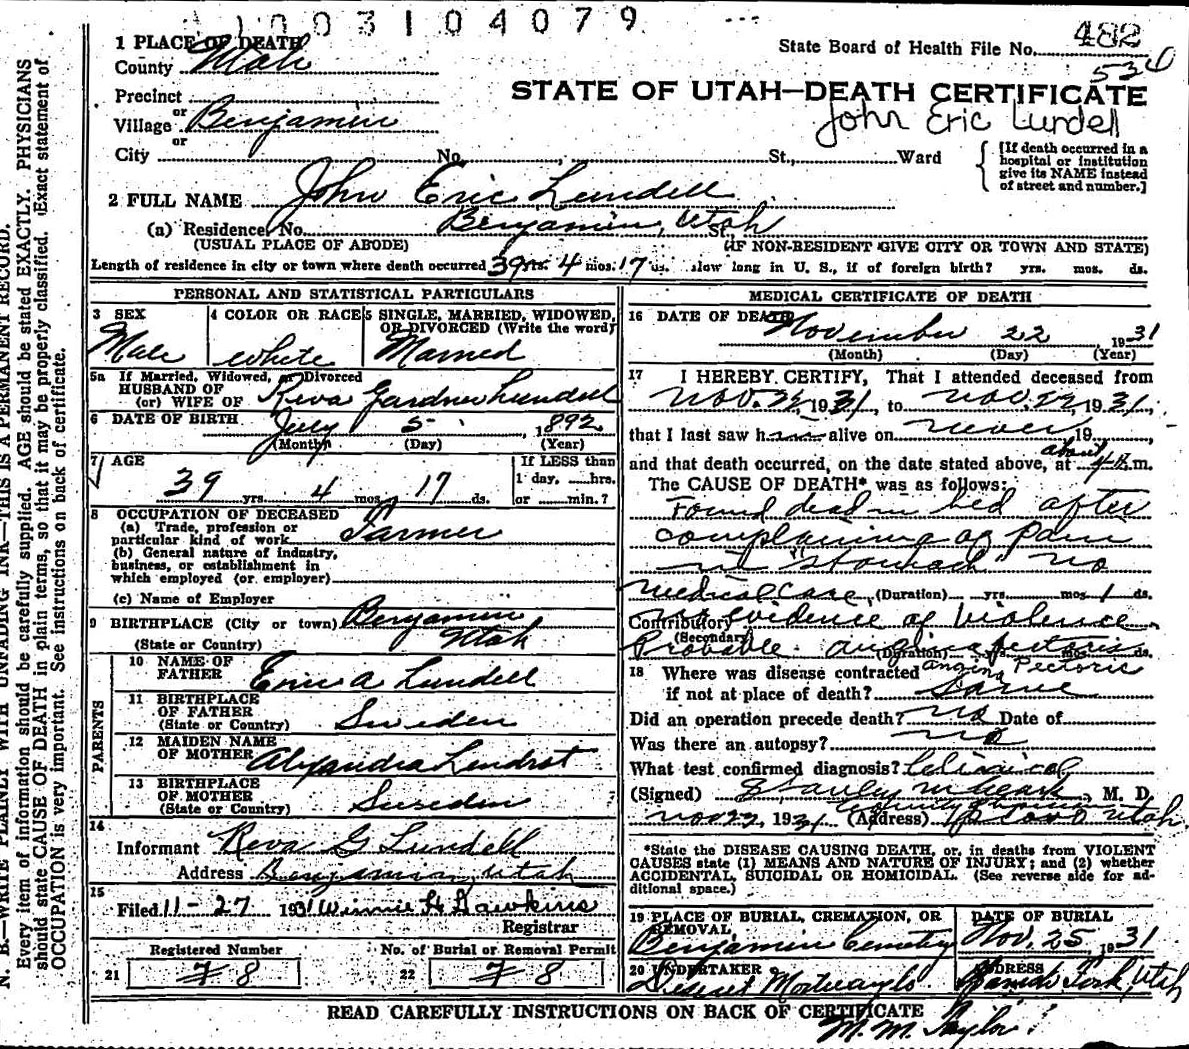 1003104079
1 PLACE OF DEATH
County Utah
State Board of Health File No. 482
536
Precinct
or
Village Benjamin
or
City No. , St., Ward
STATE OF UTAH—DEATH CERTIFICATE
John Eric Lundell
[If death occurred in a
hospital or institution
give its NAME instead
of street and number.]
2 FULL NAME John Eric Lundell
(a) Residence, No. Benjamin, Utah St.
(USUAL PLACE OF ABODE) (IF NON-RESIDENT GIVE CITY OR TOWN AND STATE)
Length of residence in city or town where death occurred 39 yrs. 4 mos. 17 ds. How long in U. S., if of foreign birth? yrs. mos. ds.
PERSONAL AND STATISTICAL PARTICULARS
3 SEX 4 COLOR OR RACE 5 SINGLE, MARRIED, WIDOWED,
OR DIVORCED (Write the word)
Male white Married
5a If Married, Widowed, or Divorced
HUSBAND OF
(or) WIFE OF Reva Gardner Lundell
6 DATE OF BIRTH July 5 , 1892
(Month) (Day) (Year)
7 AGE
39 yrs. 4 mos. 17 ds.
If LESS than
1 day, hrs.
or min.?
8 OCCUPATION OF DECEASED
(a) Trade, profession or
particular kind of work Farmer
(b) General nature of industry,
business, or establishment in
which employed (or employer)
(c) Name of Employer
9 BIRTHPLACE (City or town) Benjamin
(State or Country) Utah
PARENTS
10 NAME OF
FATHER Eric A Lundell
11 BIRTHPLACE
OF FATHER
(State or Country) Sweden
12 MAIDEN NAME
OF MOTHER Alexandra
13 BIRTHPLACE
OF MOTHER
(State or Country) Sweden
14
Informant Reva G Lundell
Address Benjamin, Utah
15
Filed 11-27 1931 Winnie H Hawkins
Registrar
Registered Number No. of Burial or Removal Permit
21 78 22 78
MEDICAL CERTIFICATE OF DEATH
16 DATE OF DEATH
November 22 , 1931
(Month) (Day) (Year)
17 I HEREBY CERTIFY, That I attended deceased from
Nov. 22 1931, to Nov. 22, 1931,
that I last saw h alive on never 19 ,
and that death occurred, on the date stated above, at about 4 m.
The CAUSE OF DEATH* was as follows:
Found dead in bed after
complaining of Pain
in "stomach" no
medical care, (Duration) yrs. mos. 1 ds.
Contributory no evidence of violence
(Secondary)
Probable angina pectoris (Duration) yrs. mos. ds.
angina Pectoris
18 Where was disease contracted
if not at place of death? Same
Did an operation precede death? no Date of
Was there an autopsy? no
What test confirmed diagnosis? Clinical
(Signed) Stanley M Clark, M. D.
County Physician
Nov 22, 1931 (Address) Provo Utah
*State the DISEASE CAUSING DEATH, or, in deaths from VIOLENT
CAUSES state (1) MEANS AND NATURE OF INJURY; and (2) whether
ACCIDENTAL, SUICIDAL OR HOMICIDAL. (See reverse side for ad-
ditional space.)
19 PLACE OF BURIAL, CREMATION, OR
REMOVAL,
Benjamin Cemetery
DATE OF BURIAL
Nov. 25 1931
20 UNDERTAKER
Deseret Mortuary
ADDRESS
Spanish Fork, Utah
READ CAREFULLY INSTRUCTIONS ON BACK OF CERTIFICATE
M. M. Taylor
N. B.—WRITE PLAINLY WITH UNFADING INK—THIS IS A PERMANENT RECORD.
Every item of information should be carefully supplied. AGE should be stated EXACTLY. PHYSICIANS
should state CAUSE OF DEATH in plain terms, so that it may be properly classified. Exact statement of
OCCUPATION is very important. See instructions on back of certificate.